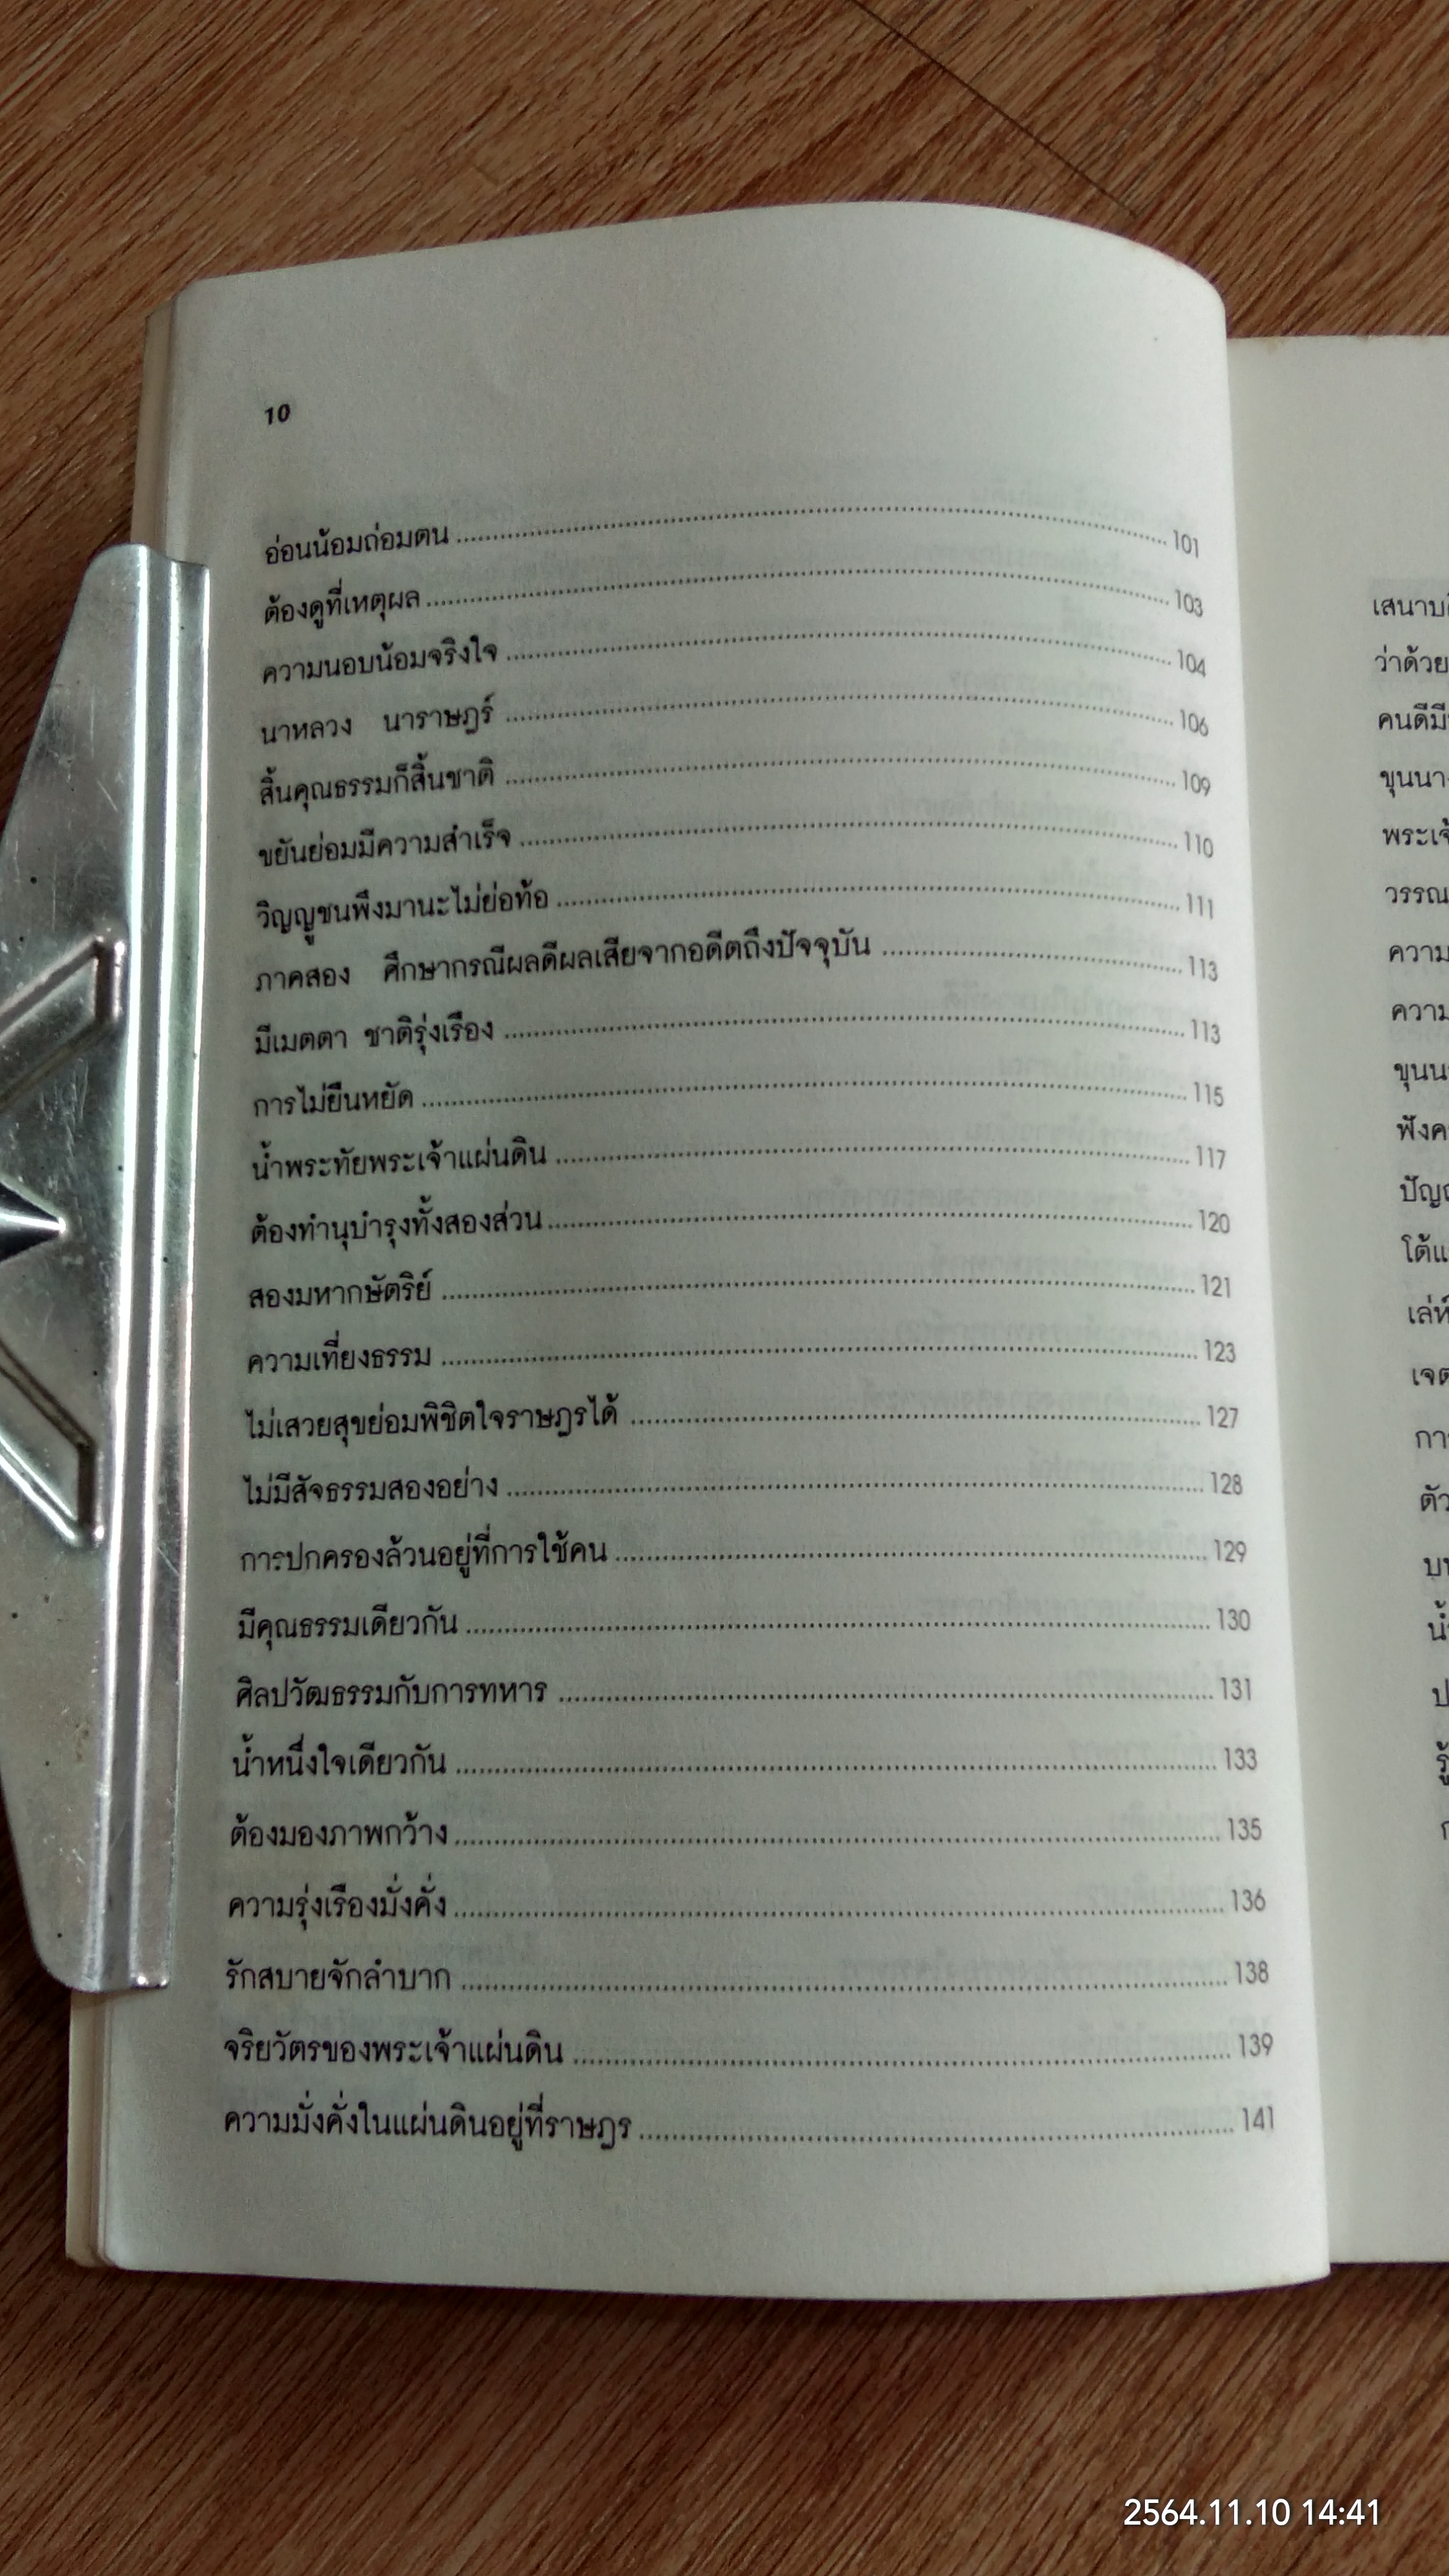 10
อ่อนน้อมถ่อมตน ........ 101
ต้องดูที่เหตุผล ........ 103
ความนอบน้อมจริงใจ ........ 104
นาหลวง นาราษฎร์ ........ 106
สิ้นคุณธรรมก็สิ้นชาติ ........ 109
ขยันย่อมมีความสำเร็จ ........ 110
วิญญูชนพึงมานะไม่ย่อท้อ ........ 111
ภาคสอง ศึกษากรณีผลดีผลเสียจากอดีตถึงปัจจุบัน ........ 113
มีเมตตา ชาติรุ่งเรือง ........ 113
การไม่ยืนหยัด ........ 115
น้ำพระทัยพระเจ้าแผ่นดิน ........ 117
ต้องทำนุบำรุงทั้งสองส่วน ........ 120
สองมหากษัตริย์ ........ 121
ความเที่ยงธรรม ........ 123
ไม่เสวยสุขย่อมพิชิตใจราษฎรได้ ........ 127
ไม่มีสัจธรรมสองอย่าง ........ 128
การปกครองล้วนอยู่ที่การใช้คน ........ 129
มีคุณธรรมเดียวกัน ........ 130
ศิลปวัฒธรรมกับการทหาร ........ 131
น้ำหนึ่งใจเดียวกัน ........ 133
ต้องมองภาพกว้าง ........ 135
ความรุ่งเรืองมั่งคั่ง ........ 136
รักสบายจักลำบาก ........ 138
จริยวัตรของพระเจ้าแผ่นดิน ........ 139
ความมั่งคั่งในแผ่นดินอยู่ที่ราษฎร ........ 141
ว่าด้วย
2564.11.10 14:41